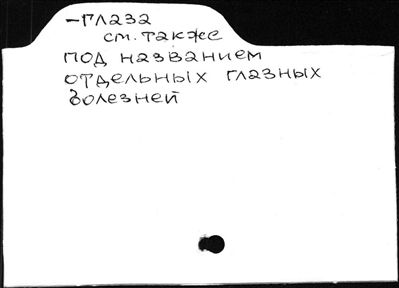 -глаза
см. также
под названием
отдельных глазных
болезней